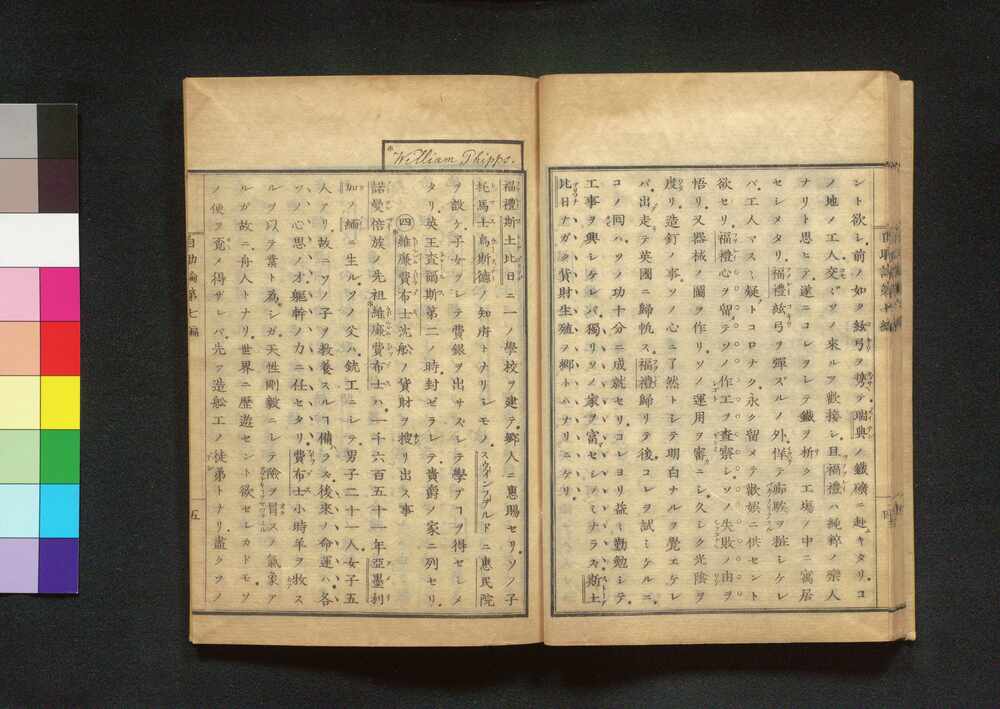 ント欲シ、前ノ如ク絃弓ヲ携テ瑞典ノ鐵礦ニ赴キタリコ
ノ地ノ工人交〻ソノ來ルヲ歡接シ且福禮ハ純粹ノ樂人
ナリト思ヒテ遂ニコレヲシテ鐵ヲ析ク工場ノ中ニ寓居
セシメタリ福禮絃弓ヲ彈ズルノ外
バ、工人マスマス疑フトコロナク永ク留メテ歡娯ニ供セント
欲セリ福禮心ヲ留テソノ作工ヲ査察シソノ失敗ノ由ヲ
悟リ又器械ノ圖ヲ作リソノ運用ヲ審ニシ久シク光陰ヲ
度リ造釘ノ事、ソノ心ニ了然トシテ明白ナルヲ覺エケレ
バ出走シテ英國ニ歸帆ス福禮歸リテ後コレヲ試ミケルニ
コノ回ハソノ功十分ニ成就セリコレヨリ益〻勤勉シテ
工事ヲ興シケレバ獨リソノ家ヲ富セシノミナラズ斯土
比日ナガク貨財生殖ノ郷トハナリニケリ
William Phipps.
福禮斯土比日ニ一ノ學校ヲ建テ郷人ニ惠賜セリソノ子
托馬士鳥斯德ノ知府トナリシモノスウインフアルドニ惠民院
ヲ設ケ子女ヲシテ費銀ヲ出サズシテ學ブコヲ得セシメ
タリ英王査爾斯第二ノ時封ゼラレテ貴爵ノ家ニ列セリ
四 維廉費布士沈舩ノ貨財ヲ搜リ出ス事
諾曼倍族ノ先祖維廉費布士ハ一千六百五十一年亞墨利
加ノ緬ニ生ルソノ父ハ銃工ニシテ男子二十一人女子五
人アリ故ニソノ子ヲ教養スルコ備ラズ後來ノ命運ハ各
ソノ心思ノオ軀幹ノ力ニ任セタリ費布士小時羊ヲ牧ス
ルヲ以テ業ト為シガ天性剛毅ニシテ險ヲ冒スノ氣象ア
ルガ故ニ舟人トナリ世界ニ歴遊セント欲セシカドモソ
ノ便ヲ覔メ得ザレバ先ヅ造舩工ノ徒弟トナリ盡クソノ
自助論第七編
五